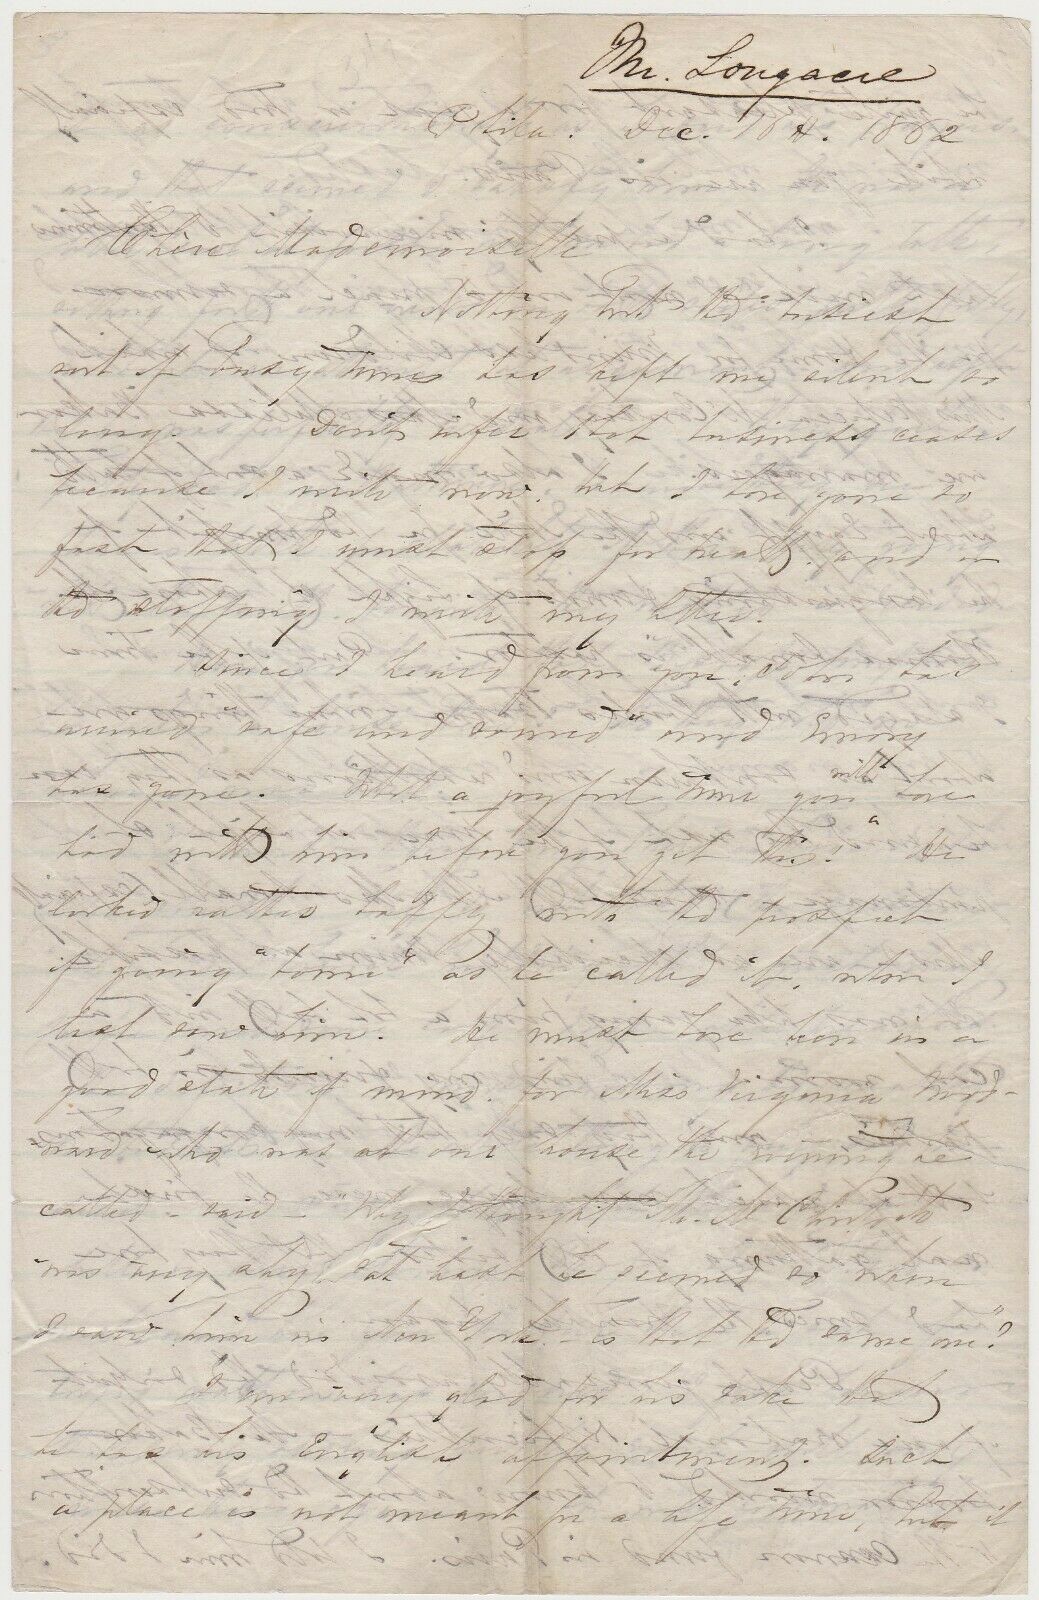 Mr. Longacre
Phila. Dec. 18th. 1862
Chère Mademoiselle
Nothing but the busiest
sort of busy times has kept me silent so
long. Don't infer that business ceases
because I write now, but I have gone so
fast that I must stop for breath and in
the stopping I write my letter.
Since I heard from you, has
arrived "safe and sound" and Emory
has gone. What a joyful time you will have
had with him before you get this! He
looked rather happy with the prospect
of going "home" as he called it, when I
last saw him. He must have been in a
good state of mind, for Miss Virginia Wood-
ward who was at our house the evening he
called - said - "Why I thought Mr. McClintock
was very shy, at least he seemed so when
I saw him in New York - is that the same one"?
I am very glad for his sake that
he has his English appointment. Such
a place is not meant for a life time, but it